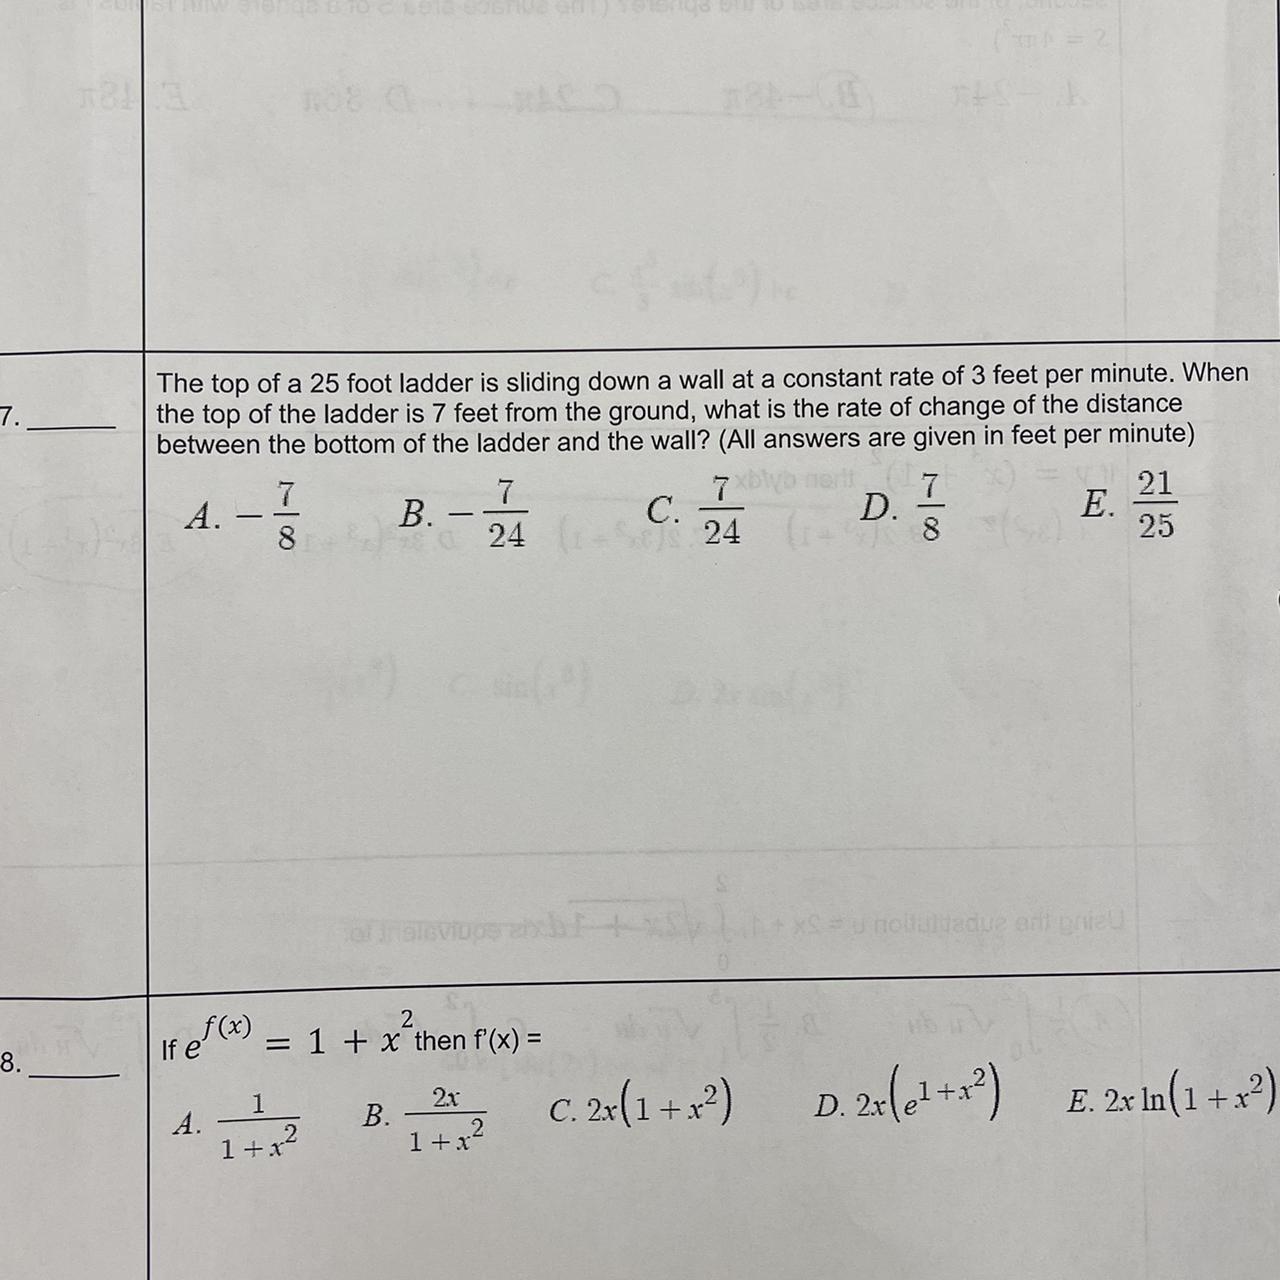 7. ______ The top of a 25 foot ladder is sliding down a wall at a constant rate of 3 feet per minute. When
the top of the ladder is 7 feet from the ground, what is the rate of change of the distance
between the bottom of the ladder and the wall? (All answers are given in feet per minute)
A. −7/8 B. −7/24 C. 7/24 D. 7/8 E. 21/25
8. ______ If e^f(x) = 1 + x² then f'(x) =
A. 1/(1+x²) B. 2x/(1+x²) C. 2x(1+x²) D. 2x(e^(1+x²)) E. 2x ln(1+x²)